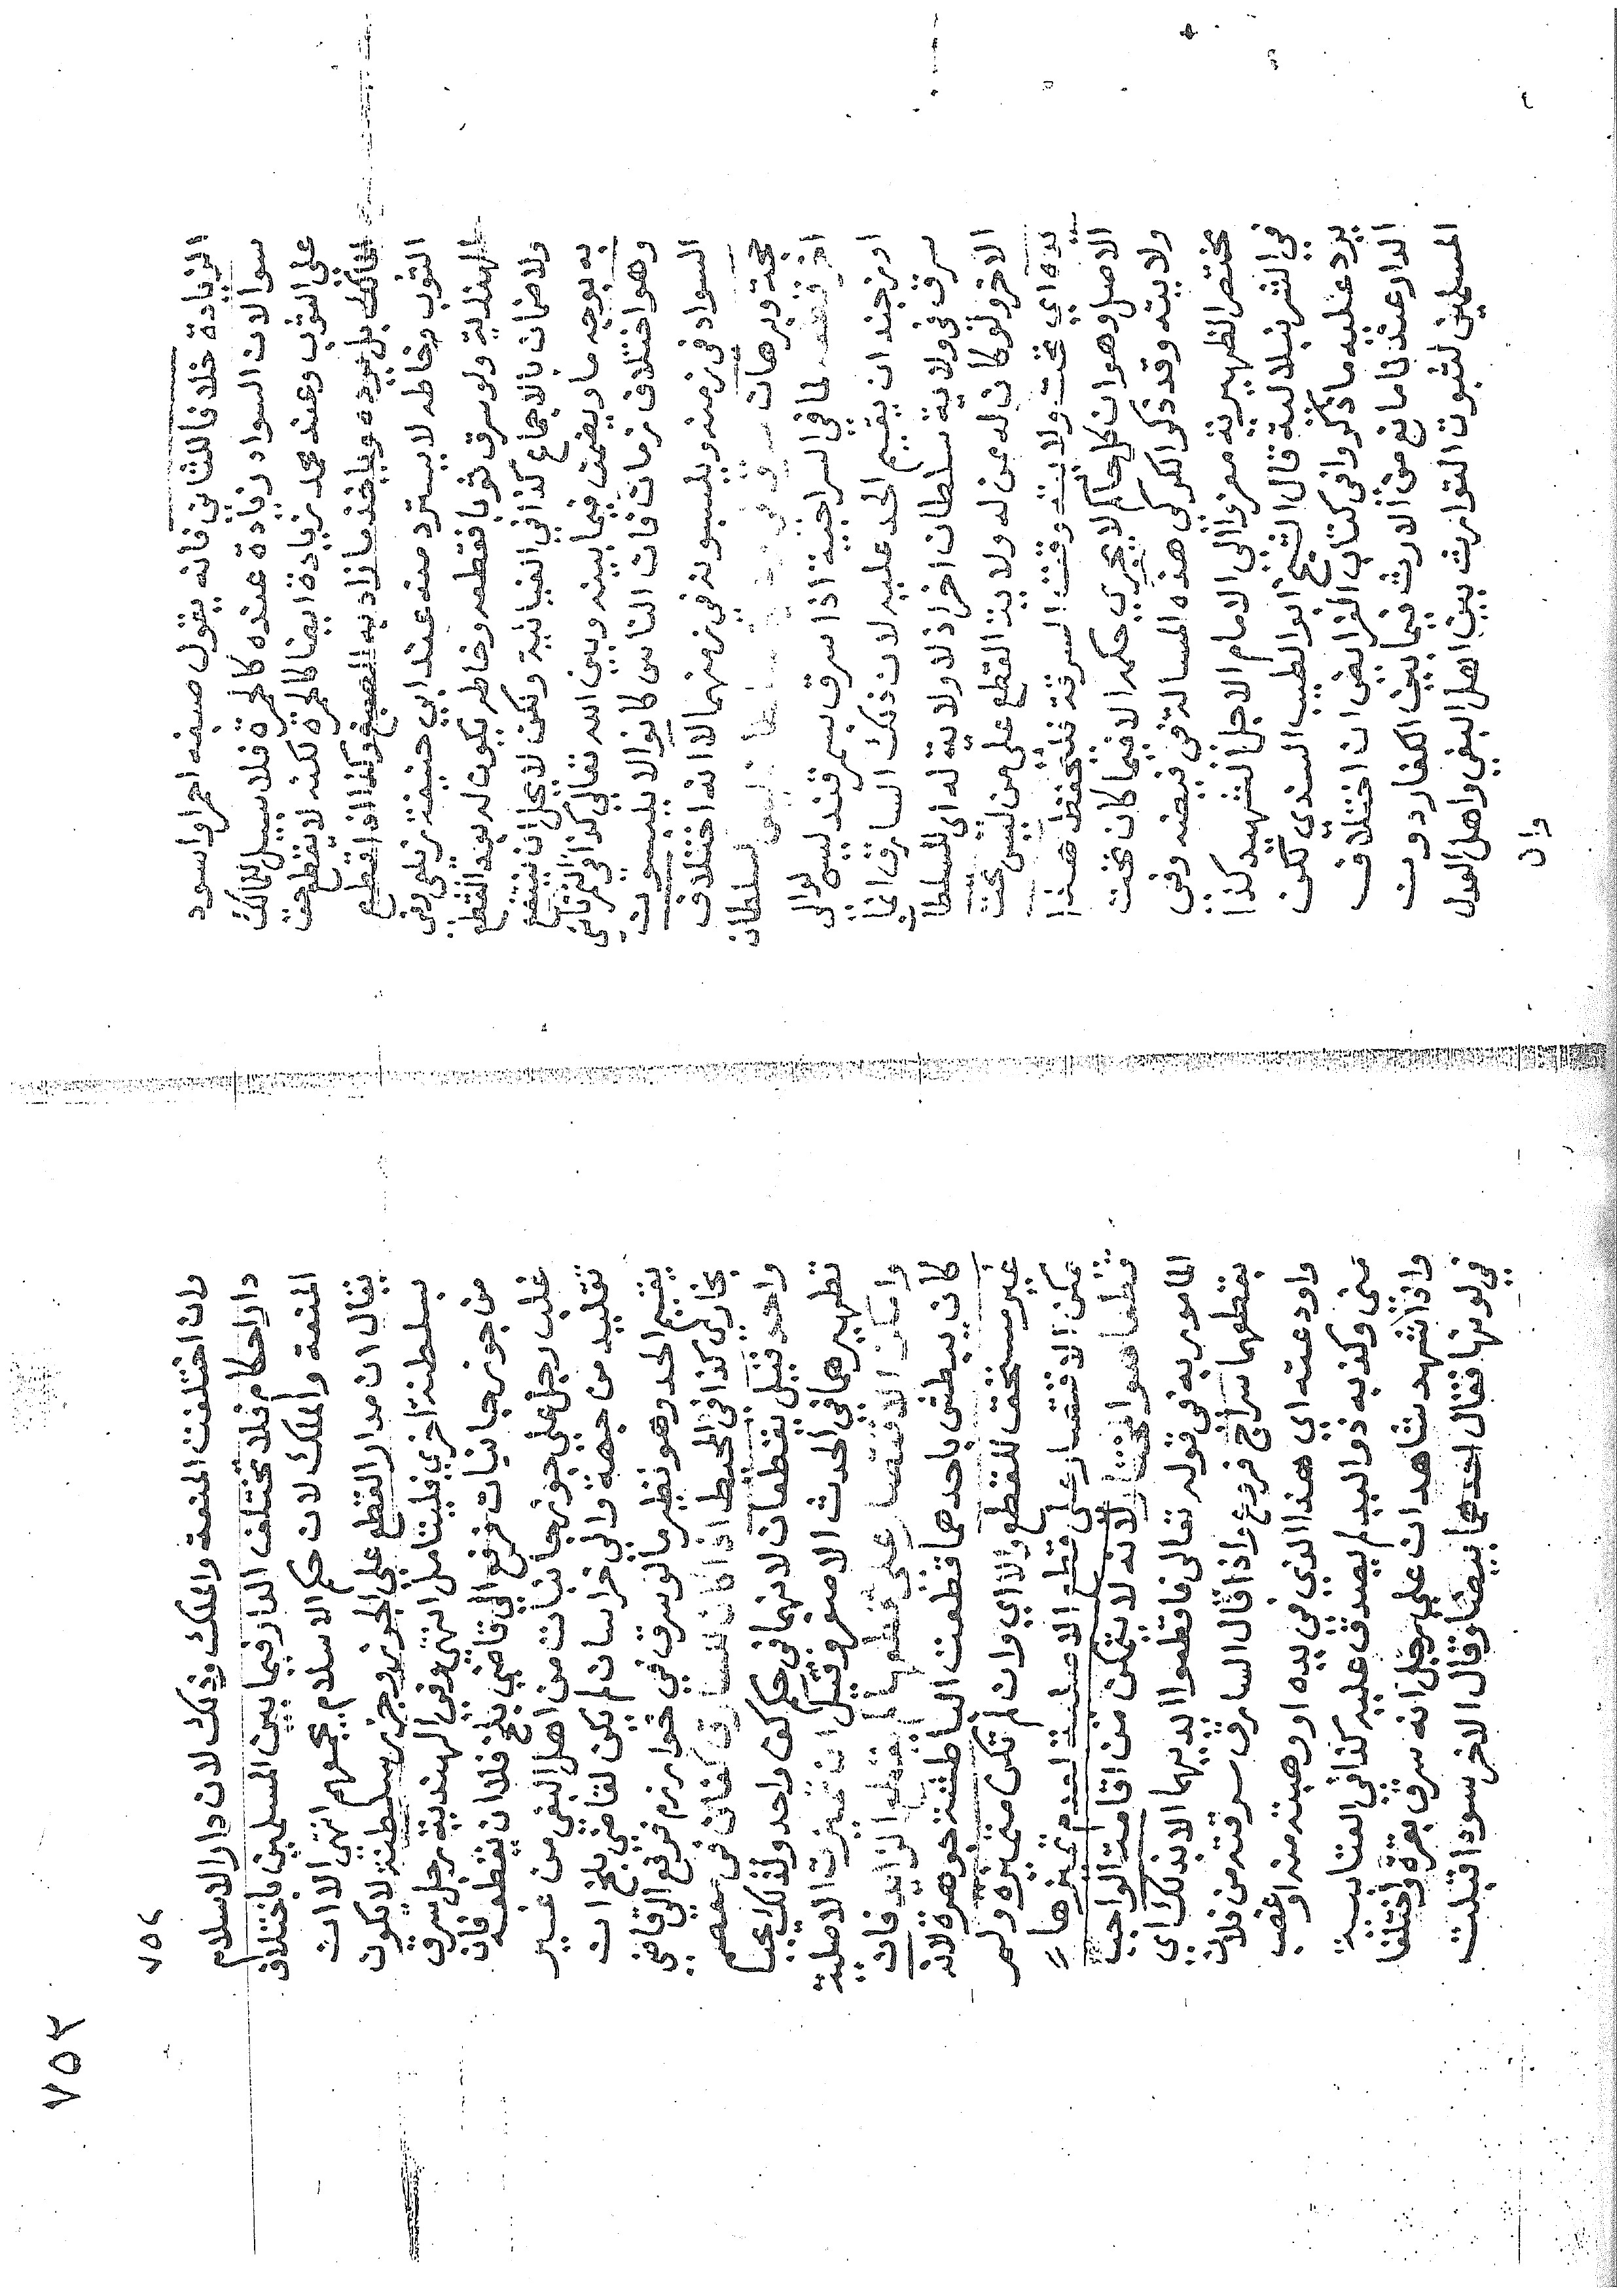 الزيادة خلافا للثاني فانه يقول صبغه احمرا واسود
سوا لان السواد زيادة عنده كالحمرة فلا سبيل للمالك
على الثوب وعند محمد زيادة ايضا كالحمرة لكنه لا يقطع حق
المالك بل يرده وياخذ ما زاد به الصبغ وكذا اذا قطع
الثوب وخاطه لا يسترد منه عند ابي حنيفة زيلعي وفي
الهندية ولو سرق ثوبا فقطعه وخاطه يكون له بعد القطع
ولا ضمان بالاجماع كذا في الغياثية ولكن لا يحل ان ينتفع
به بوجه ما ويضمن فيما بينه وبين الله تعالى كذا في
وهو اختلاف زمان فان الناس كانوا لا يلبسون
السواد في زمنه ويلبسونه في زمنهما لا انه اختلاف
حجة وبرهان سرق في سلطان ليس لسلطان
اخر قطعه لما في السراجية اذا سرق بسمرقند ليس لوالى
اوزجند ان يقيم الحد عليه لان ذلك السارق انما
سرق في ولاية سلطان اخر اذ لا ولاية له اى للسلطان
الاخر ولو كان له عزله ولاية القطع على من ليس تحت
يده اي تحت ولايته وقت السرقة فليحفظ هذا
الاصل وهو ان كل حاكم لا يجري حكمه الا فيما كان تحت
ولايته وقد ذكر الكركي هذه المسالة في فيضه وفي
مختصر الظهيرية معزوا الى الامام الاجل الشهيد كذا
في الشرنبلالية قال الشيخ ابو الطيب السندي لكن
يرد عليه ما ذكروا في كتاب الفرايض ان اختلاف
الدار عندنا مانع من الارث فيما بين الكفار دون
المسلمين لثبوت التوارث بين اهل البغي واهل العدل
وان
٧٥٢
٧٥٢
وان اختلفت المنعة والملك وذلك لان دار الاسلام
دار احكام فلا تختلف الدار فيما بين المسلمين باختلاف
المنعة والملك لان حكم الاسلام يجمعهم انتهى الا ان
يقال ان مدار القطع على الجزر وجزر سلطنة لا يكون
بسلطنة اخرى فليتامل انتهى وفي الهندية رجل سرق
من جوزجانيات فرفع الى قاضي بلخ فلا ان يقطعه فان
غلب رجل على جوزجانيات من اهل البغي من غير
تقليد من جهة والي خراسان لم يكن لقاضي بلخ ان
يقيم الحد وهو نظير ما لو سرق في خوارزم فرفع الى قاضي
بخارى كذا في المحيط اذا كان للسارق كفان في معصم
واحد قيل يقطعان لانهما في حكم كف واحد ولذلك يجب
تطهيرهما في الحدث الاصغر وقيل ان تميزت الاصلية
وامكن الاقتصار على قطعها لم يقطع الزايد فان
كان يبطش باحدهما قطعت الباطشة جوهرة لانه
غير مستحق للقطع والا اي وان لم تكن متميزة ولم
يمكن الاقتصار على قطع الاصلية لعدم تميزها
قطعا هو المختار لانه لا يتمكن من اقامة الواجب
المامور به في قوله تعالى فاقطعوا ايديهما الا بذلك اي
بقطعهما سراج فروع واذا قال السارق سرقته من فلان
واودعته اي هذا الذي في يده او وهبته منه او غصب
منى وكذبه ذو اليد لم يصدق عليه كذا في العتابية
واذا شهد شاهدان على رجل انه سرق بقرة واختلفا
في لونها فقال احدهما بيضا وقال الاخر سودا قبلت